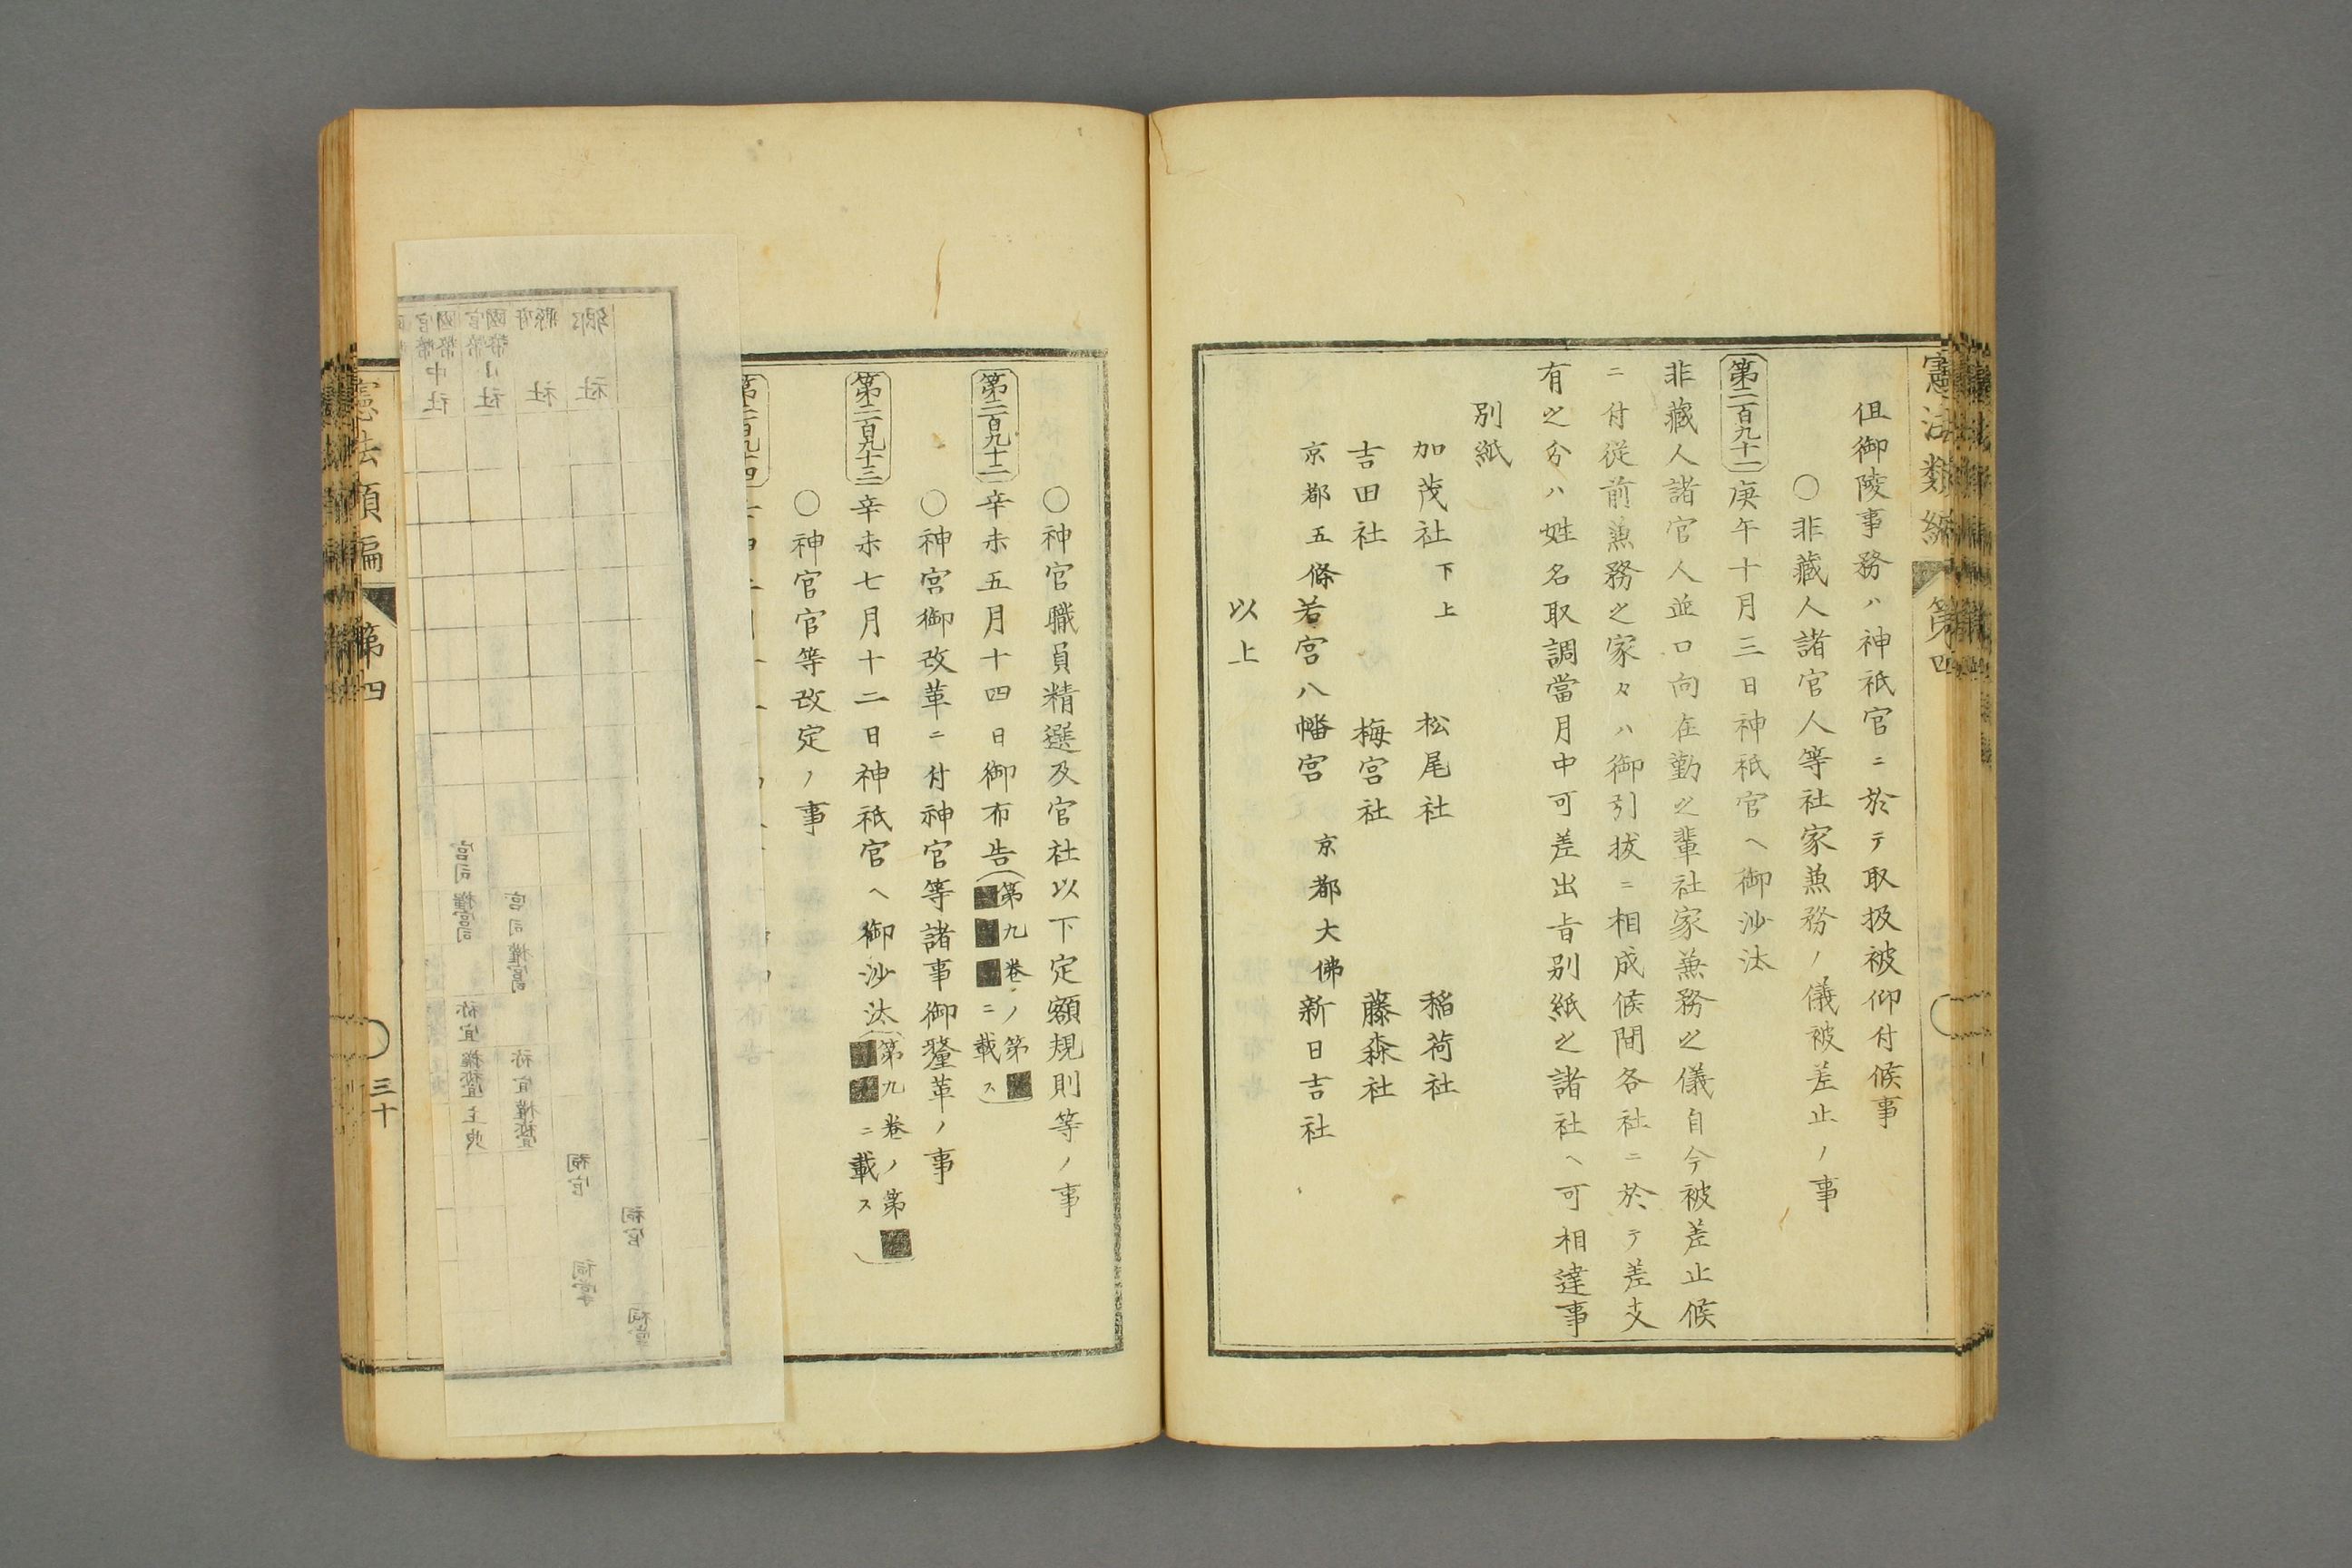 憲法類編 第四
但御陵事務ハ神祇官ニ於テ取扱被仰付候事
〇非藏人諸官人等社家兼務ノ儀被差止ノ事
第二百九十一 庚午十月三日神祇官ヘ御沙汰
非藏人諸官人並口向在勤之輩社家兼務之儀自今被差止候
ニ付從前兼務之家々ハ御引拔ニ相成候間各社ニ於テ差支
有之分ハ姓名取調當月中可差出旨別紙之諸社ヘ可相達事
別紙
加茂社下上 松尾社 稲荷社
吉田社 梅宮社 藤森社
京都五條若宮八幡宮 京都大佛新日吉社
以上
〇神官職員精選及官社以下定額規則等ノ事
第二百九十二 辛未五月十四日御布告(第九卷ノ第■■■■ニ載ス)
〇神宮御改革ニ付神官等諸事御釐革ノ事
第二百九十三 辛未七月十二日神祇官ヘ御沙汰(第九卷ノ第■■■ニ載ス)
〇神官官等改定ノ事
第二百九十四
郷社 祠官 祠掌
府縣社 祠官 祠掌
國幣官幣小社 宮司 權宮司 祢宜 權祢宜
國幣官幣中社 宮司 權宮司 祢宜 權祢宜 主典
憲法類編 第四 三十